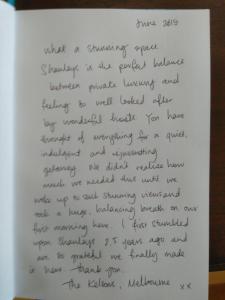 June 2019
What a stunning space
Shanleys is the perfect balance
between private luxury and
feeling so well looked after
by wonderful hosts. You have
thought of everything for a quiet,
indulgent and rejuvenating
getaway. We didn't realise how
much we needed this until we
woke up to such stunning views and
took a huge, balancing breath on our
first morning here. I first stumbled
upon Shanleys 2.5 years ago and
am so grateful we finally made
it here. Thank you.
The Kelsons, Melbourne xx